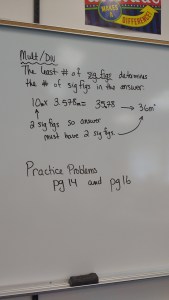 MAKES A
DIFFERENCE!
Mult/Div
The least # of sig figs determines
the # of sig figs in the answer.
10m x 3.578m = 35.78 → 36m²
2 sig figs so answer
must have 2 sig figs
Practice Problems
pg 14 and pg 16